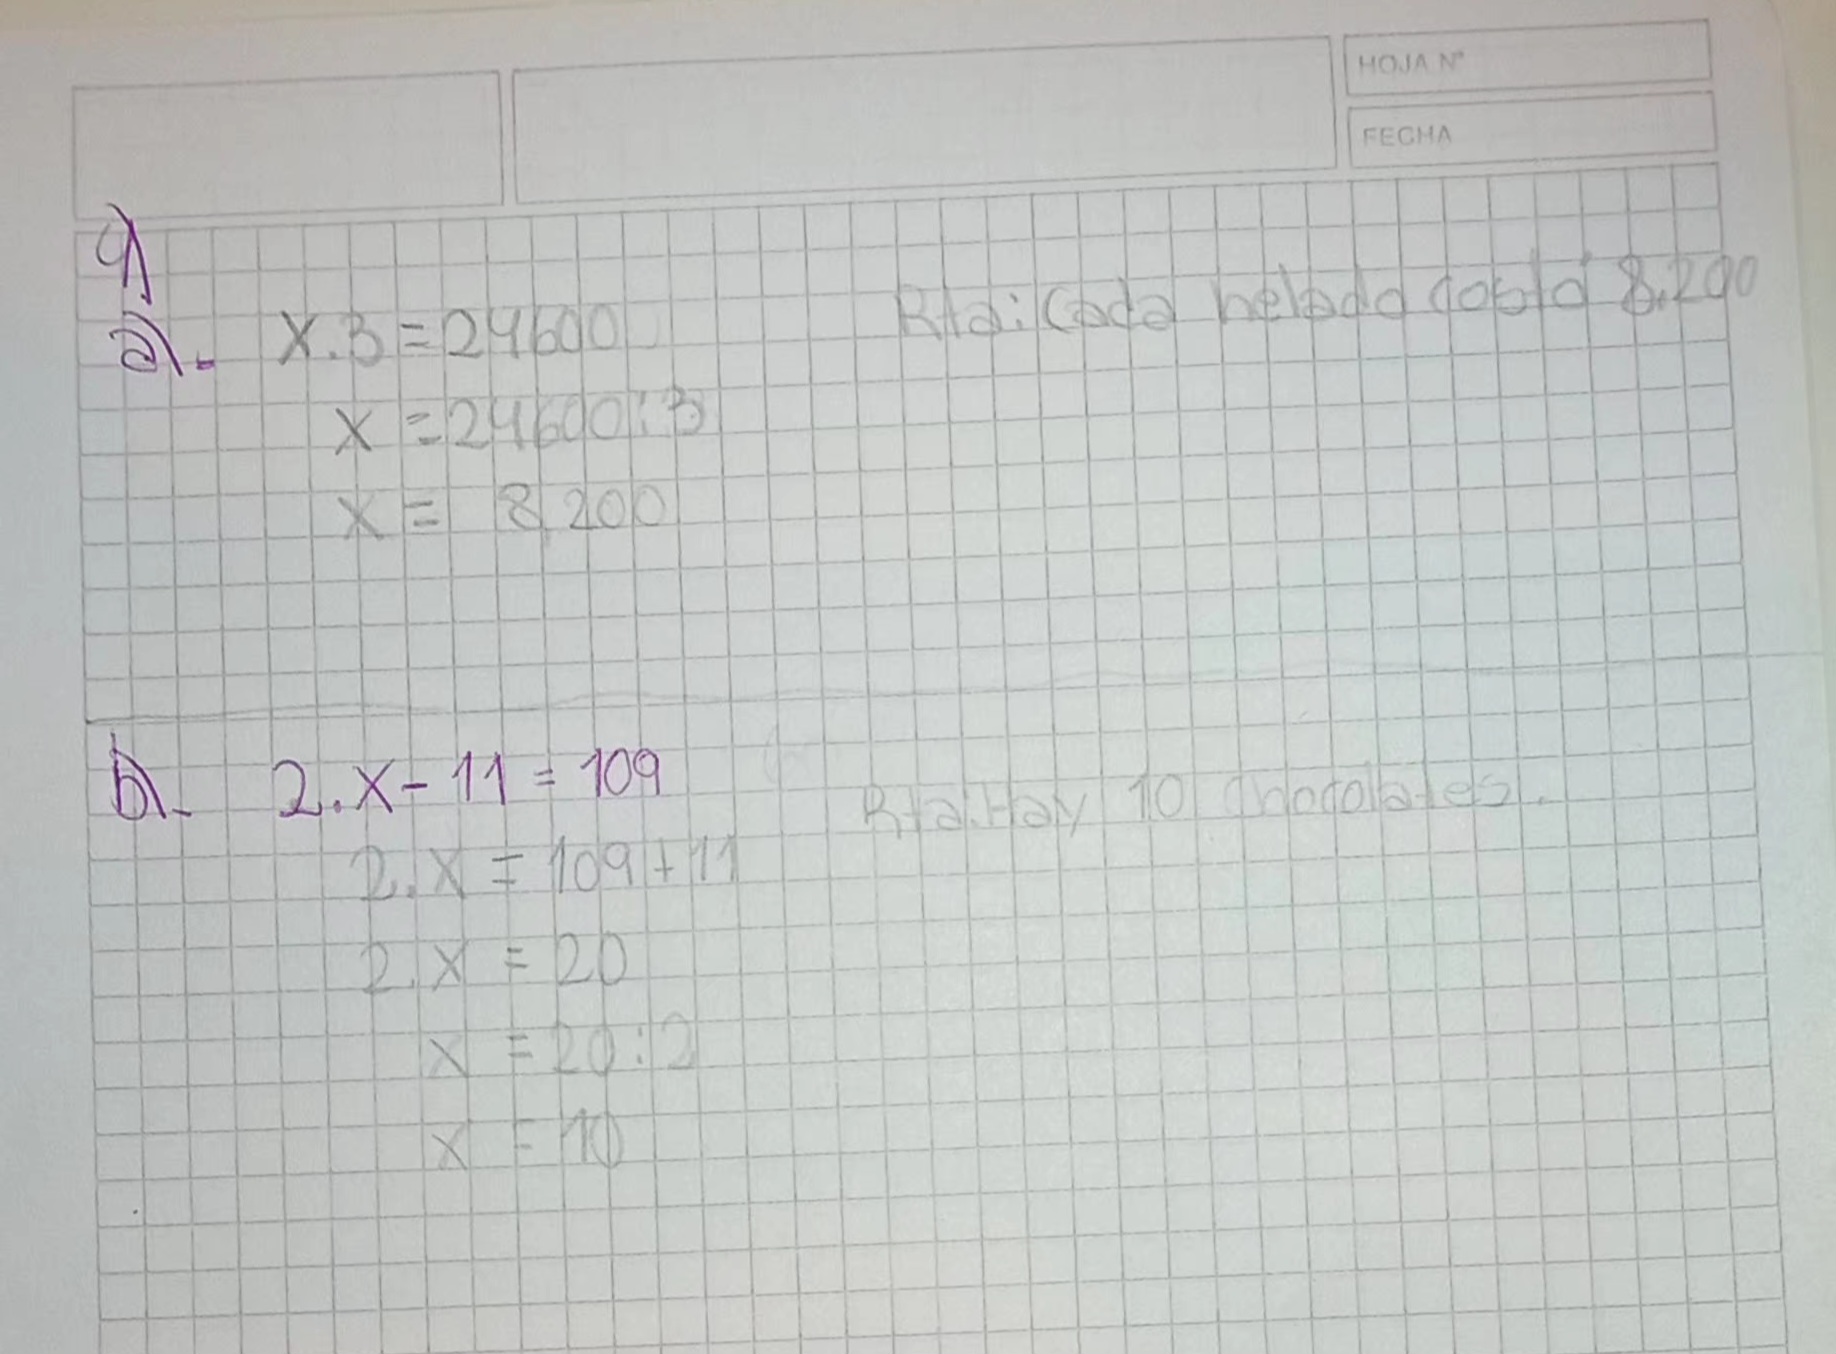 HOJA N°
FECHA
9)
a).- x.3=24600
Rta: Cada helado costó 8.200
x =24600:3
x = 8.200
b).- 2.x-11=109
Rta: Hay 10 chocolates.
2.x = 109+11
2.x = 20
x = 20:2
x = 10